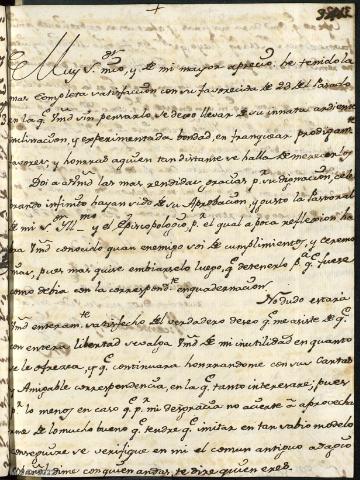 +
Muy S.or mio, y de mi mayor aprecio: he tenido la
mas completa satisfaccion con su favorecida de 23 del pasado
en la q.e Vmd sin pensarlo se dejo llevar de su innata ardiente
inclinacion, y experimentada bondad, en franquear prodigam.te
favores, y honrras aquien tan distante se halla de merecerlos.
Doi a Vmd las mas rendidas gracias p.r su dignacion, cele
brando infinito hayan sido de su Aprobacion, y gusto la Pastoral
de mi S.or Ill.mo y el Episcopologio p.r el qual a poca reflexion ha
ra Vmd conocido quan enemigo soi de cumplimientos, y ceremo
nias, pues mas quise embiarselo luego, q.e detenerlo p.a q.e fuese
como debia con la correspond.te enquadernacion.
No dudo estará
Vmd enteram.te satisfecho del verdadero deseo q.e me asiste de q.e
con entera libertad se valga Vmd de mi inutilidad en quanto
se le ofrezca, y q.e continuara honrrandome con sus Cartas
y Amigable correspondencia, en la q.e tanto interesare, pues
p.r lo menos en caso q.e p.r mi desgracia no acierte à aprovechar
me de lo mucho bueno q.e tendre q.e imitar en tan sabio modelo
conseguire se verifique en mi el comun antiguo adagio
Español, dime con quien andas, te dire quien eres.